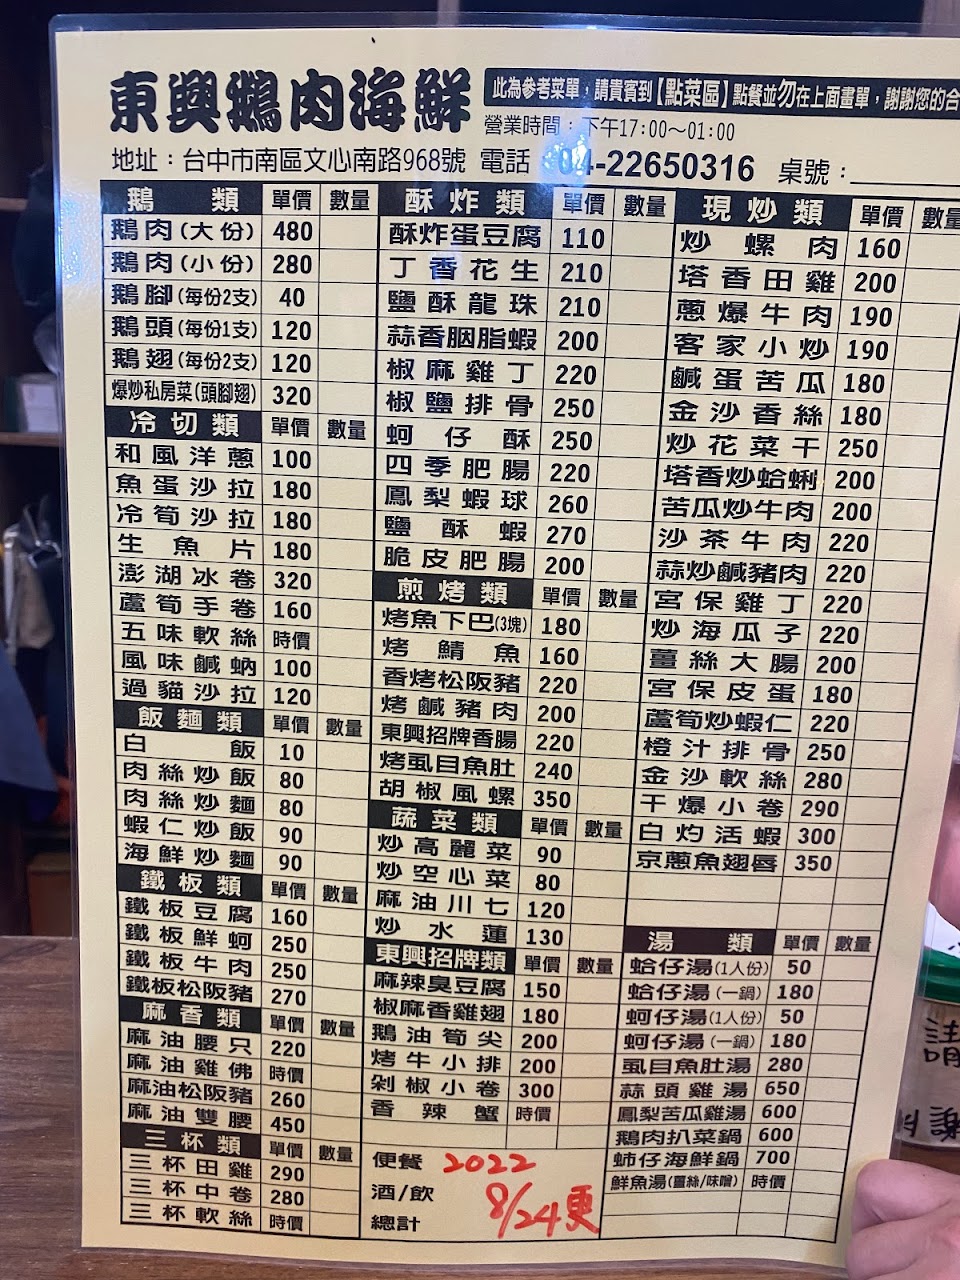 東興鵝肉海鮮
此為參考菜單，請貴賓到【點菜區】點餐並勿在上面畫單，謝謝您的合
營業時間：下午17:00～01:00
地址：台中市南區文心南路968號 電話 04-22650316 桌號：
鵝類 單價 數量
鵝肉(大份) 480
鵝肉(小份) 280
鵝腳(每份2支) 40
鵝頭(每份1支) 120
鵝翅(每份2支) 120
爆炒私房菜(頭腳翅) 320
冷切類 單價 數量
和風洋蔥 100
魚蛋沙拉 180
冷筍沙拉 180
生魚片 180
澎湖冰卷 320
蘆筍手卷 160
五味軟絲 時價
風味鹹蚋 100
過貓沙拉 120
飯麵類 單價 數量
白飯 10
肉絲炒飯 80
肉絲炒麵 80
蝦仁炒飯 90
海鮮炒麵 90
鐵板類 單價 數量
鐵板豆腐 160
鐵板鮮蚵 250
鐵板牛肉 250
鐵板松阪豬 270
麻香類 單價 數量
麻油腰只 220
麻油雞佛 時價
麻油松阪豬 260
麻油雙腰 450
三杯類 單價 數量
三杯田雞 290
三杯中卷 280
三杯軟絲 時價
酥炸類 單價 數量
酥炸蛋豆腐 110
丁香花生 210
鹽酥龍珠 210
蒜香胭脂蝦 200
椒麻雞丁 220
椒鹽排骨 250
蚵仔酥 250
四季肥腸 220
鳳梨蝦球 260
鹽酥蝦 270
脆皮肥腸 200
煎烤類 單價 數量
烤魚下巴(3塊) 180
烤鯖魚 160
香烤松阪豬 220
烤鹹豬肉 200
東興招牌香腸 220
烤虱目魚肚 240
胡椒風螺 350
蔬菜類 單價 數量
炒高麗菜 90
炒空心菜 80
麻油川七 120
炒水蓮 130
東興招牌類 單價 數量
麻辣臭豆腐 150
椒麻香雞翅 180
鵝油筍尖 200
烤牛小排 200
剁椒小卷 300
香辣蟹 時價
便餐 2022
酒/飲 8/24更
總計
現炒類 單價 數量
炒螺肉 160
塔香田雞 200
蔥爆牛肉 190
客家小炒 190
鹹蛋苦瓜 180
金沙香絲 180
炒花菜干 250
塔香炒蛤蜊 200
苦瓜炒牛肉 200
沙茶牛肉 220
蒜炒鹹豬肉 220
宮保雞丁 220
炒海瓜子 220
薑絲大腸 200
宮保皮蛋 180
蘆筍炒蝦仁 220
橙汁排骨 250
金沙軟絲 280
干爆小卷 290
白灼活蝦 300
京蔥魚翅唇 350
湯類 單價 數量
蛤仔湯(1人份) 50
蛤仔湯(一鍋) 180
蚵仔湯(1人份) 50
蚵仔湯(一鍋) 180
虱目魚肚湯 280
蒜頭雞湯 650
鳳梨苦瓜雞湯 600
鵝肉扒菜鍋 600
蚵仔海鮮鍋 700
鮮魚湯(薑絲/味噌) 時價